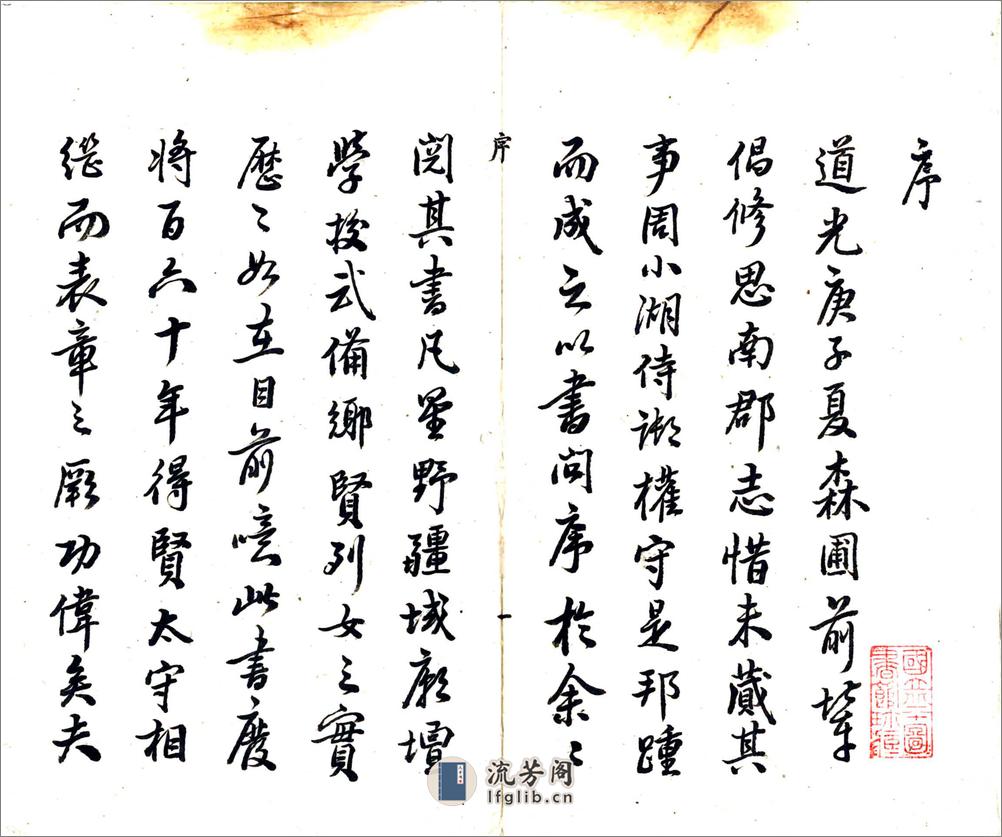 序
道光庚子夏森圃前輩
倡修思南郡志惜未蕆其
事周小湖侍御權守是邦踵
而成之以書問序於余〻
序
一
閱其書凡星野疆域廟壇
學校武備鄉賢列女之實
歷〻如在目前噫此書廢
將百六十年得賢太守相
繼而表章之厥功偉矣夫
流芳阁
lfglib.cn